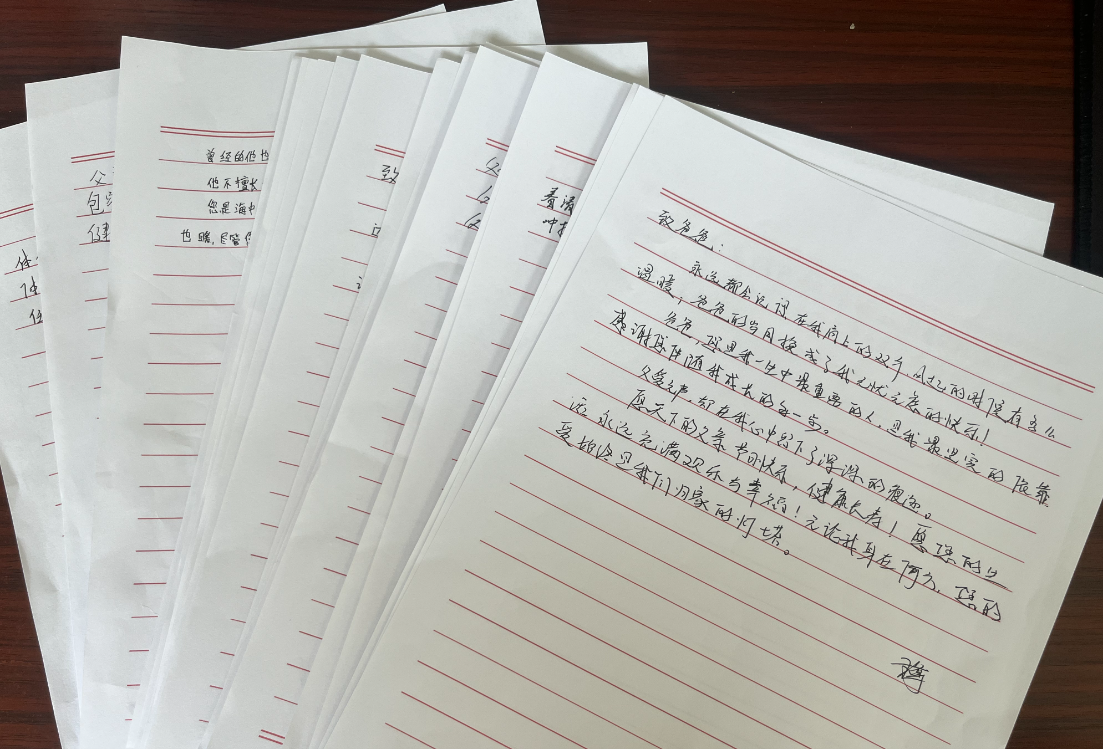 父
包
健
曾经的他也
他不擅长
您是海中
也暖,尽管你
致
父
看清
致爸爸:
永远都会记得在我肩上的双手,小时的时候有多么
温暖;爸爸的岁月换成了我无忧无虑的快乐!
爸爸,您是我一生中最重要的人,是我最坚实的依靠
感谢您伴随我成长的每一步。
父爱无声,却在我心中留下了深深的痕迹。
愿天下的父亲节日快乐,健康长寿!愿您的生
活永远充满欢乐与幸福!无论我身在何方,您的
爱始终是我们归家的灯塔。